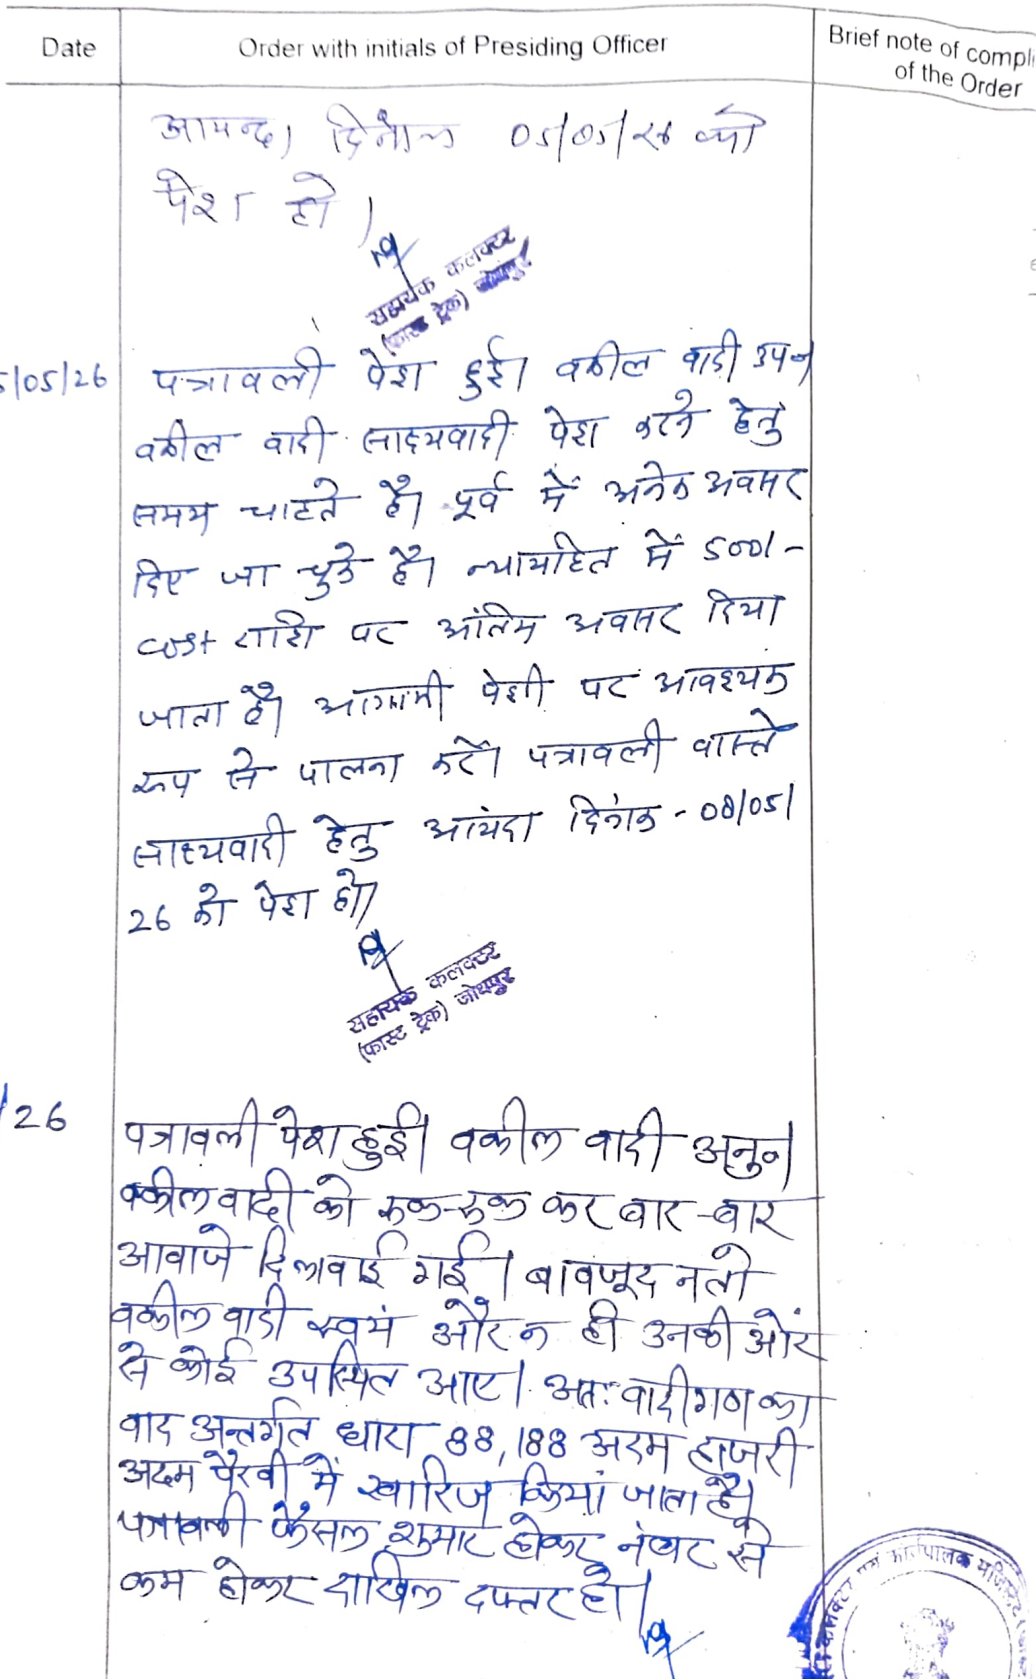 Date
Order with initials of Presiding Officer
Brief note of compli
of the Order
दिनांक 05/05/26 को
पेश हो।
सहायक कलक्टर
(फास्ट ट्रेक) जोधपुर
5/05/26
पत्रावली पेश हुई। वकील वादी उप०
वकील वादी साक्ष्यवादी पेश करने हेतु
समय चाहते है। पूर्व में अनेक अवसर
दिए जा चुके है। न्यायहित में 500/-
cost राशि पर अंतिम अवसर दिया
जाता है। आगामी पेशी पर आवश्यक
रूप से पालना करें। पत्रावली वास्ते
साक्ष्यवादी हेतु आयंदा दिनांक - 08/05/
26 को पेश हो।
सहायक कलक्टर
(फास्ट ट्रेक) जोधपुर
/26
पत्रावली पेश हुई। वकील वादी अनु०।
वकील वादी को रुक-रुक कर बार-बार
आवाजे दिलवाई गई। बावजूद न तो
वकील वादी स्वयं और न ही उनकी ओर
से कोई उपस्थित आए। अतः वादीगण का
वाद अन्तर्गत धारा 88, 188 अदम हाजरी
अदम पैरवी में खारिज किया जाता है।
पत्रावली फैसल शुमार होकर नंबर से
कम होकर दाखिल दफ्तर हो।
कलक्टर एवं कार्यपालक मजिस्ट्रेट